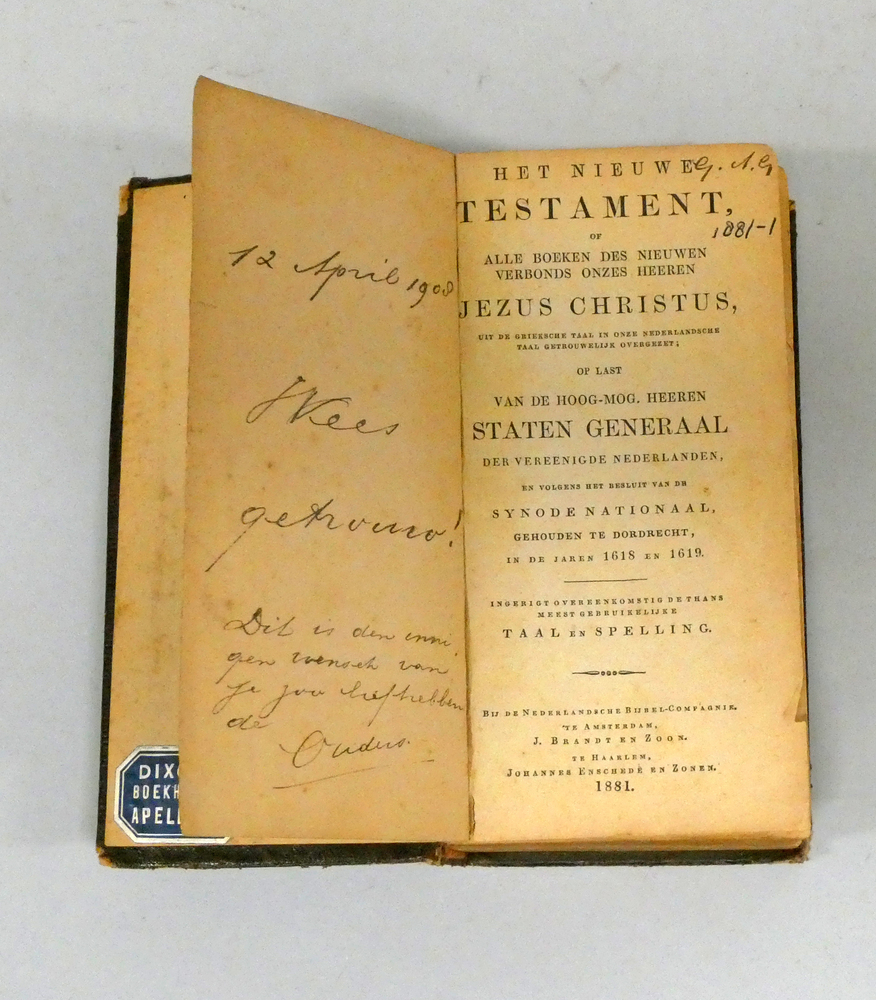 12 April 1908
Wees
getrouw!
Dit is den inni
gen wensch van
je zoo liefhebben
de
Ouders.
DIX
BOEKH
APEL
HET NIEUWE G. A. G
TESTAMENT,
1881-1
OF
ALLE BOEKEN DES NIEUWEN
VERBONDS ONZES HEEREN
JEZUS CHRISTUS,
UIT DE GRIEKSCHE TAAL IN ONZE NEDERLANDSCHE
TAAL GETROUWELIJK OVERGEZET;
OP LAST
VAN DE HOOG-MOG. HEEREN
STATEN GENERAAL
DER VEREENIGDE NEDERLANDEN,
EN VOLGENS HET BESLUIT VAN DE
SYNODE NATIONAAL,
GEHOUDEN TE DORDRECHT,
IN DE JAREN 1618 EN 1619.
INGERIGT OVEREENKOMSTIG DE THANS
MEEST GEBRUIKELIJKE
TAAL EN SPELLING.
BIJ DE NEDERLANDSCHE BIJBEL-COMPAGNIE.
TE AMSTERDAM,
J. BRANDT EN ZOON.
TE HAARLEM,
JOHANNES ENSCHEDÉ EN ZONEN.
1881.